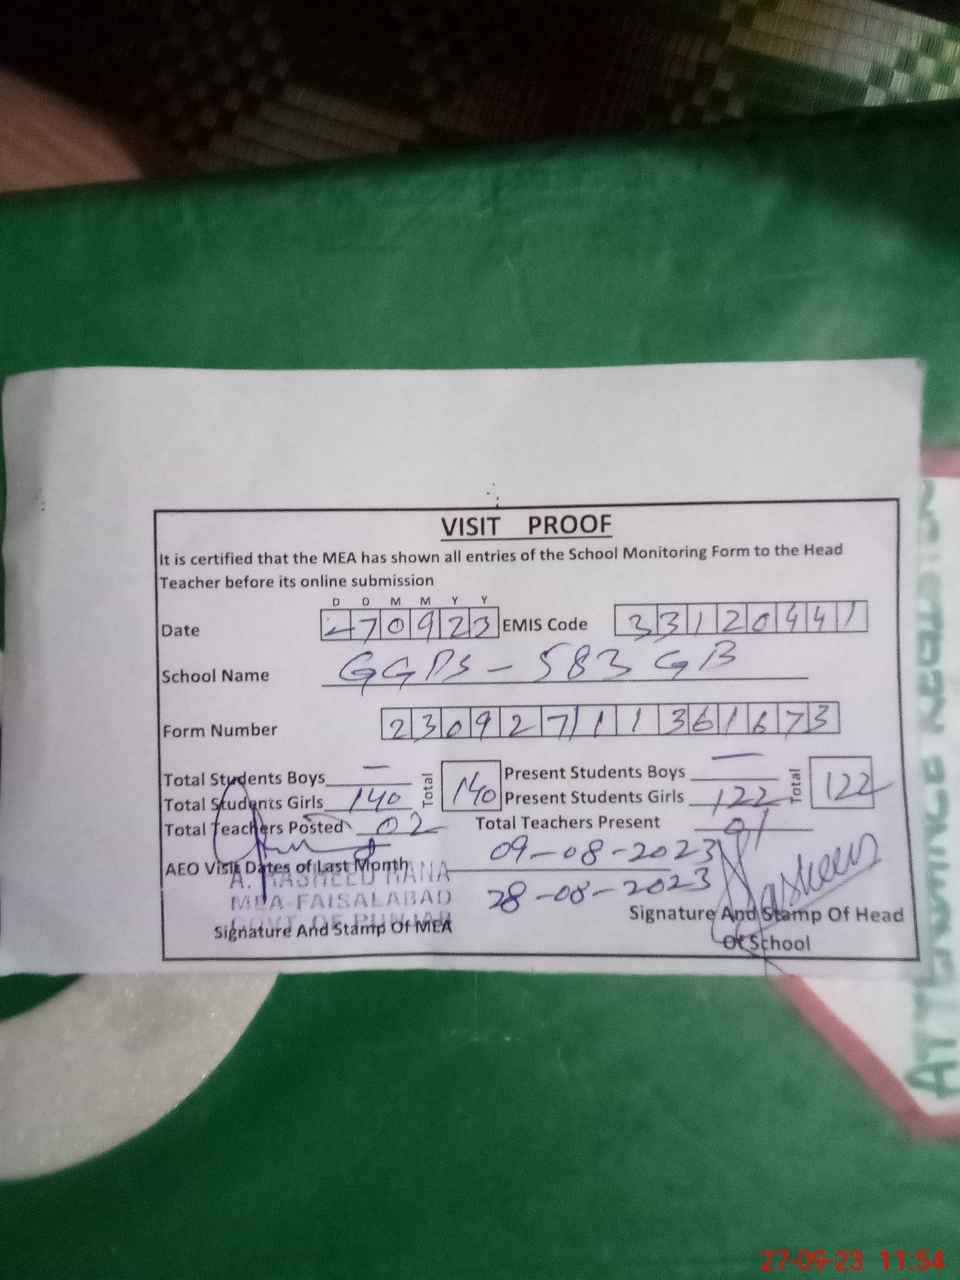 VISIT PROOF
It is certified that the MEA has shown all entries of the School Monitoring Form to the Head
Teacher before its online submission
D D M M Y Y
Date 270923 EMIS Code 33120441
School Name GGPS - 583 GB
Form Number 23092711361673
Total Students Boys — Total 140 Present Students Boys — Total 122
Total Students Girls 140 Present Students Girls 122
Total Teachers Posted 02 Total Teachers Present 01
AEO Visit Dates of Last Month 09-08-2023
28-08-2023
A. RASHEED RANA
MEA-FAISALABAD
GOVT OF PUNJAB
Signature And Stamp Of MEA
Signature And Stamp Of Head
Of School
ATTENDANCE REGISTER
27-09-23 11:54